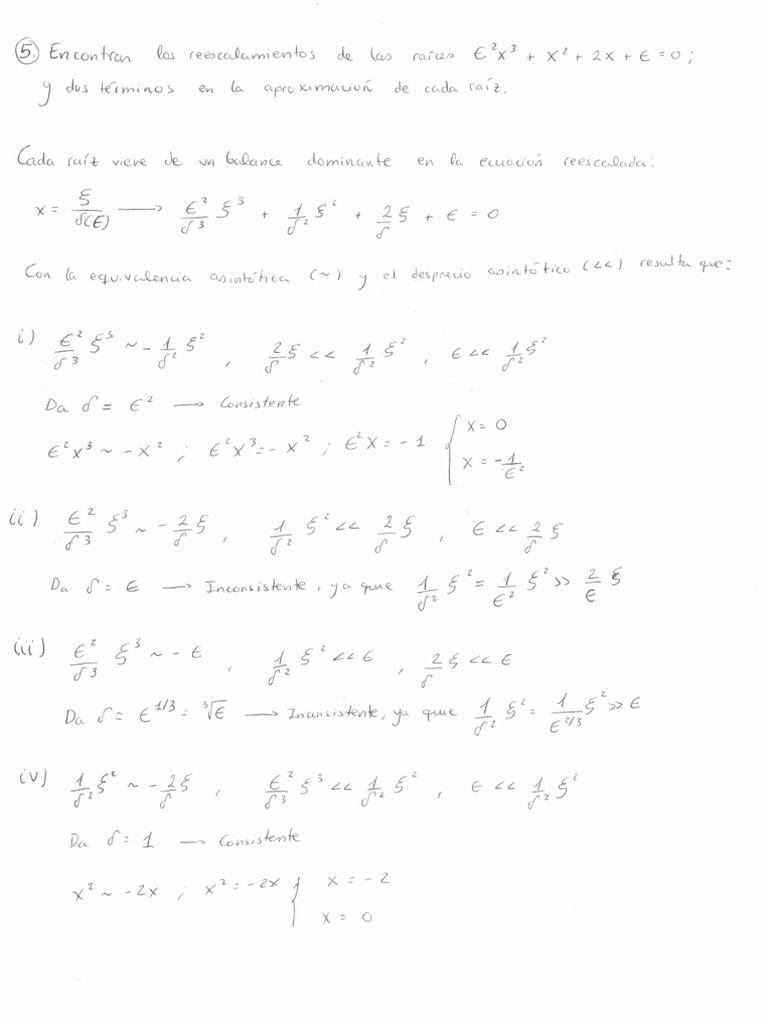 ⑤ Encontrar los reescalamientos de las raíces ε²x³ + x² + 2x + ε = 0 ;
y dos términos en la aproximación de cada raíz.
Cada raíz viene de un balance dominante en la ecuación reescalada:
x = ξ/δ(ε) ⟶ ε²/δ³ ξ³ + 1/δ² ξ² + 2/δ ξ + ε = 0
Con la equivalencia asintótica (~) y el desprecio asintótico (<<) resulta que:
i) ε²/δ³ ξ³ ~ - 1/δ² ξ² , 2/δ ξ << 1/δ² ξ² , ε << 1/δ² ξ²
Da δ = ε² ⟶ Consistente
ε²x³ ~ -x² ; ε²x³ = -x² ; ε²x = -1 { x = 0
x = -1/ε²
ii) ε²/δ³ ξ³ ~ - 2/δ ξ , 1/δ² ξ² << 2/δ ξ , ε << 2/δ ξ
Da δ = ε ⟶ Inconsistente, ya que 1/δ² ξ² = 1/ε² ξ² >> 2/ε ξ
iii) ε²/δ³ ξ³ ~ - ε , 1/δ² ξ² << ε , 2/δ ξ << ε
Da δ = ε^1/3 = ∛ε ⟶ Inconsistente, ya que 1/δ² ξ² = 1/ε^2/3 ξ² >> ε
iv) 1/δ² ξ² ~ - 2/δ ξ , ε²/δ³ ξ³ << 1/δ² ξ² , ε << 1/δ² ξ²
Da δ = 1 ⟶ Consistente
x² ~ -2x ; x² = -2x { x = -2
x = 0